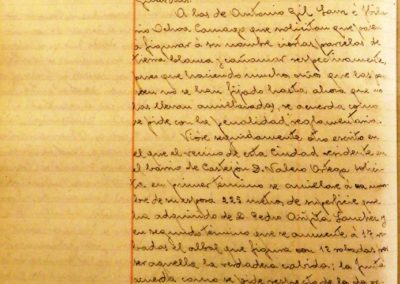 A las de Antonio Gil Sanz é Hila
rio Ochoa Camago que solicitan que pasen
á figurar a su nombre varias parcelas de
tierra blanca y cañamar respectivamente,
pues que haciendo muchos años que las po
seen no se han fijado hasta ahora que no
las llevan amillaradas, se acuerda como
se pide con la penalidad reglamentaria.
Vióse seguidamente otro escrito en
el que el vecino de esta Ciudad residente en
el barrio de Castejon D. Valero Ortega solici
ta en primer término se amillare á su nom
bre de su esposa 225 metros de superficie que
ha adquirido de D. Pedro Sanchez y
en segundo término que se aumente á 17 ro
badas el albal que figura con 12 robadas por
ser aquella la verdadera cabida; la Junta
acuerda como se pide respecto de la